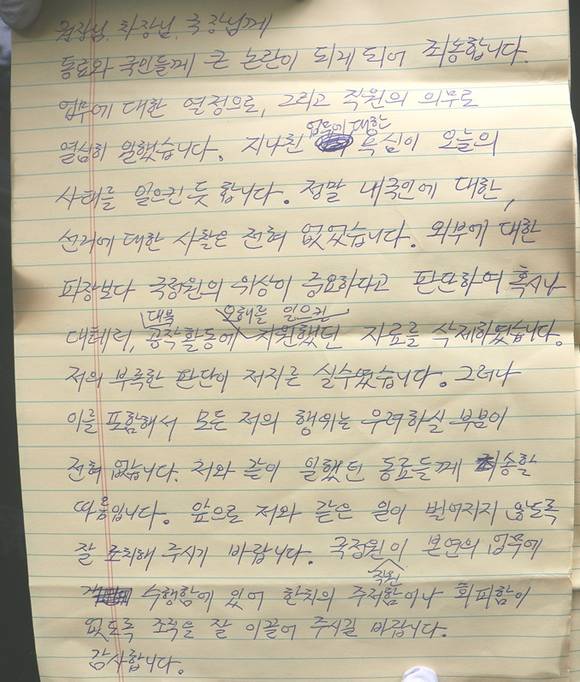 원장님, 차장님, 국장님께
동료와 국민들께 큰 논란이 되게 되어 죄송합니다.
업무에 대한 열정으로, 그리고 직원의 의무로
열심히 일했습니다. 지나친 업무에 대한 욕심이 오늘의
사태를 일으킨 듯 합니다. 정말 내국민에 대한,
선거에 대한 사찰은 전혀 없었습니다. 외부에 대한
파장보다 국정원의 위상이 중요하다고 판단하여 혹시나
대테러, 대북 공작활동에 오해를 일으킨 지원했던 자료를 삭제하였습니다.
저의 부족한 판단이 저지른 실수였습니다. 그러나
이를 포함해서 모든 저의 행위는 우려하실 부분이
전혀 없습니다. 저와 같이 일했던 동료들께 죄송할
따름입니다. 앞으로 저와 같은 일이 벌어지지 않도록
잘 조치해 주시기 바랍니다. 국정원 직원이 본연의 업무에
수행함에 있어 한치의 주저함이나 회피함이
없도록 조직을 잘 이끌어 주시길 바랍니다.
감사합니다.